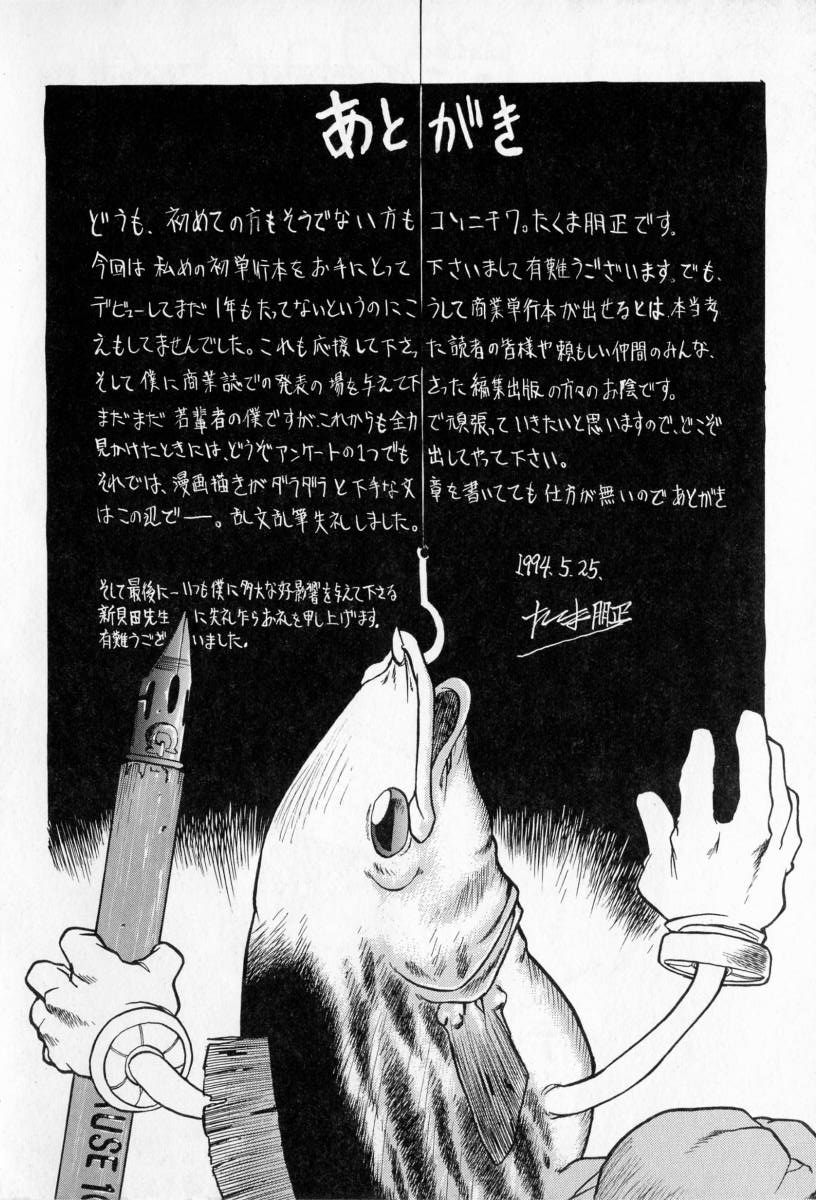 あとがき
どうも、初めての方もそうでない方もコンニチワ。たくま朋正です。
今回は私めの初単行本をお手にとって下さいまして有難うございます。でも、
デビューしてまだ1年もたってないというのにこうして商業単行本が出せるとは、本当考
えもしてませんでした。これも応援して下さった読者の皆様や頼もしい仲間のみんな、
そして僕に商業誌での発表の場を与えて下さった編集出版の方々のお陰です。
まだまだ若輩者の僕ですが、これからも全力で頑張っていきたいと思いますので、どこぞ
見かけたときには、どうぞアンケートの1つでも出してやって下さい。
それでは、漫画描きがダラダラと下手な文章を書いてても仕方が無いのであとがき
はこの辺でー。乱文乱筆失礼しました。
1994.5.25.
たくま朋正
そして最後に−いつも僕に多大な好影響を与えて下さる
新貝田先生に失礼乍らお礼を申し上げます。
有難うございました。
USE 10